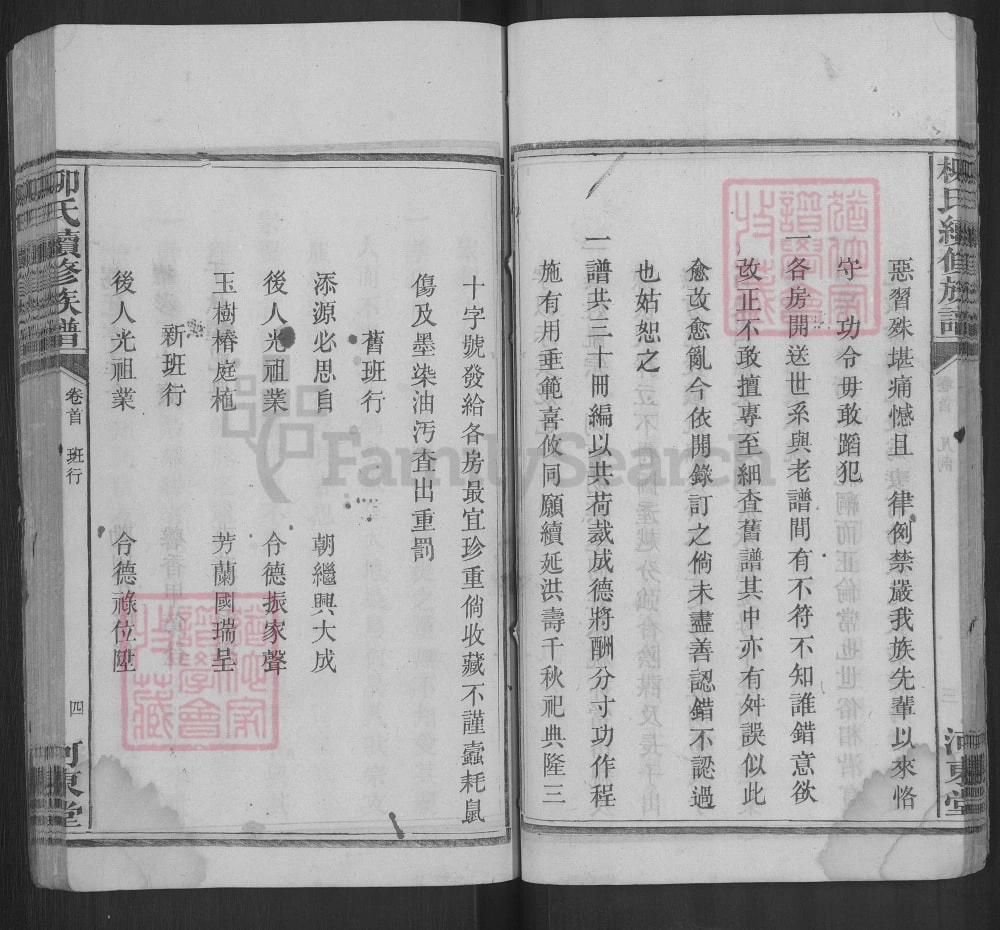 柳氏續修族譜
卷首
凡例
三
河東堂
惡習殊堪痛憾且 律例禁嚴我族先輩以來恪
守 功令毋敢蹈犯
一各房開送世系與老譜間有不符不知誰錯意欲
改正不敢擅專至細查舊譜其中亦有舛誤似此
愈改愈亂今依開錄訂之倘未盡善認錯不認過
也姑恕之
一譜共三十冊編以共荷裁成德將酬分寸功作程
施有用垂範喜攸同願續延洪壽千秋祀典隆三
十字號發給各房最宜珍重倘收藏不謹蠧耗鼠
傷及墨染油污查出重罰
舊班行
添源必思自 朝繼興大成
後人光祖業 令德振家聲
玉樹椿庭植 芳蘭國瑞呈
新班行
後人光祖業 令德祿位陞
柳氏續修族譜
卷首
班行
四
河東堂
猶他家譜學會收藏
猶他家譜學會收藏
FamilySearch